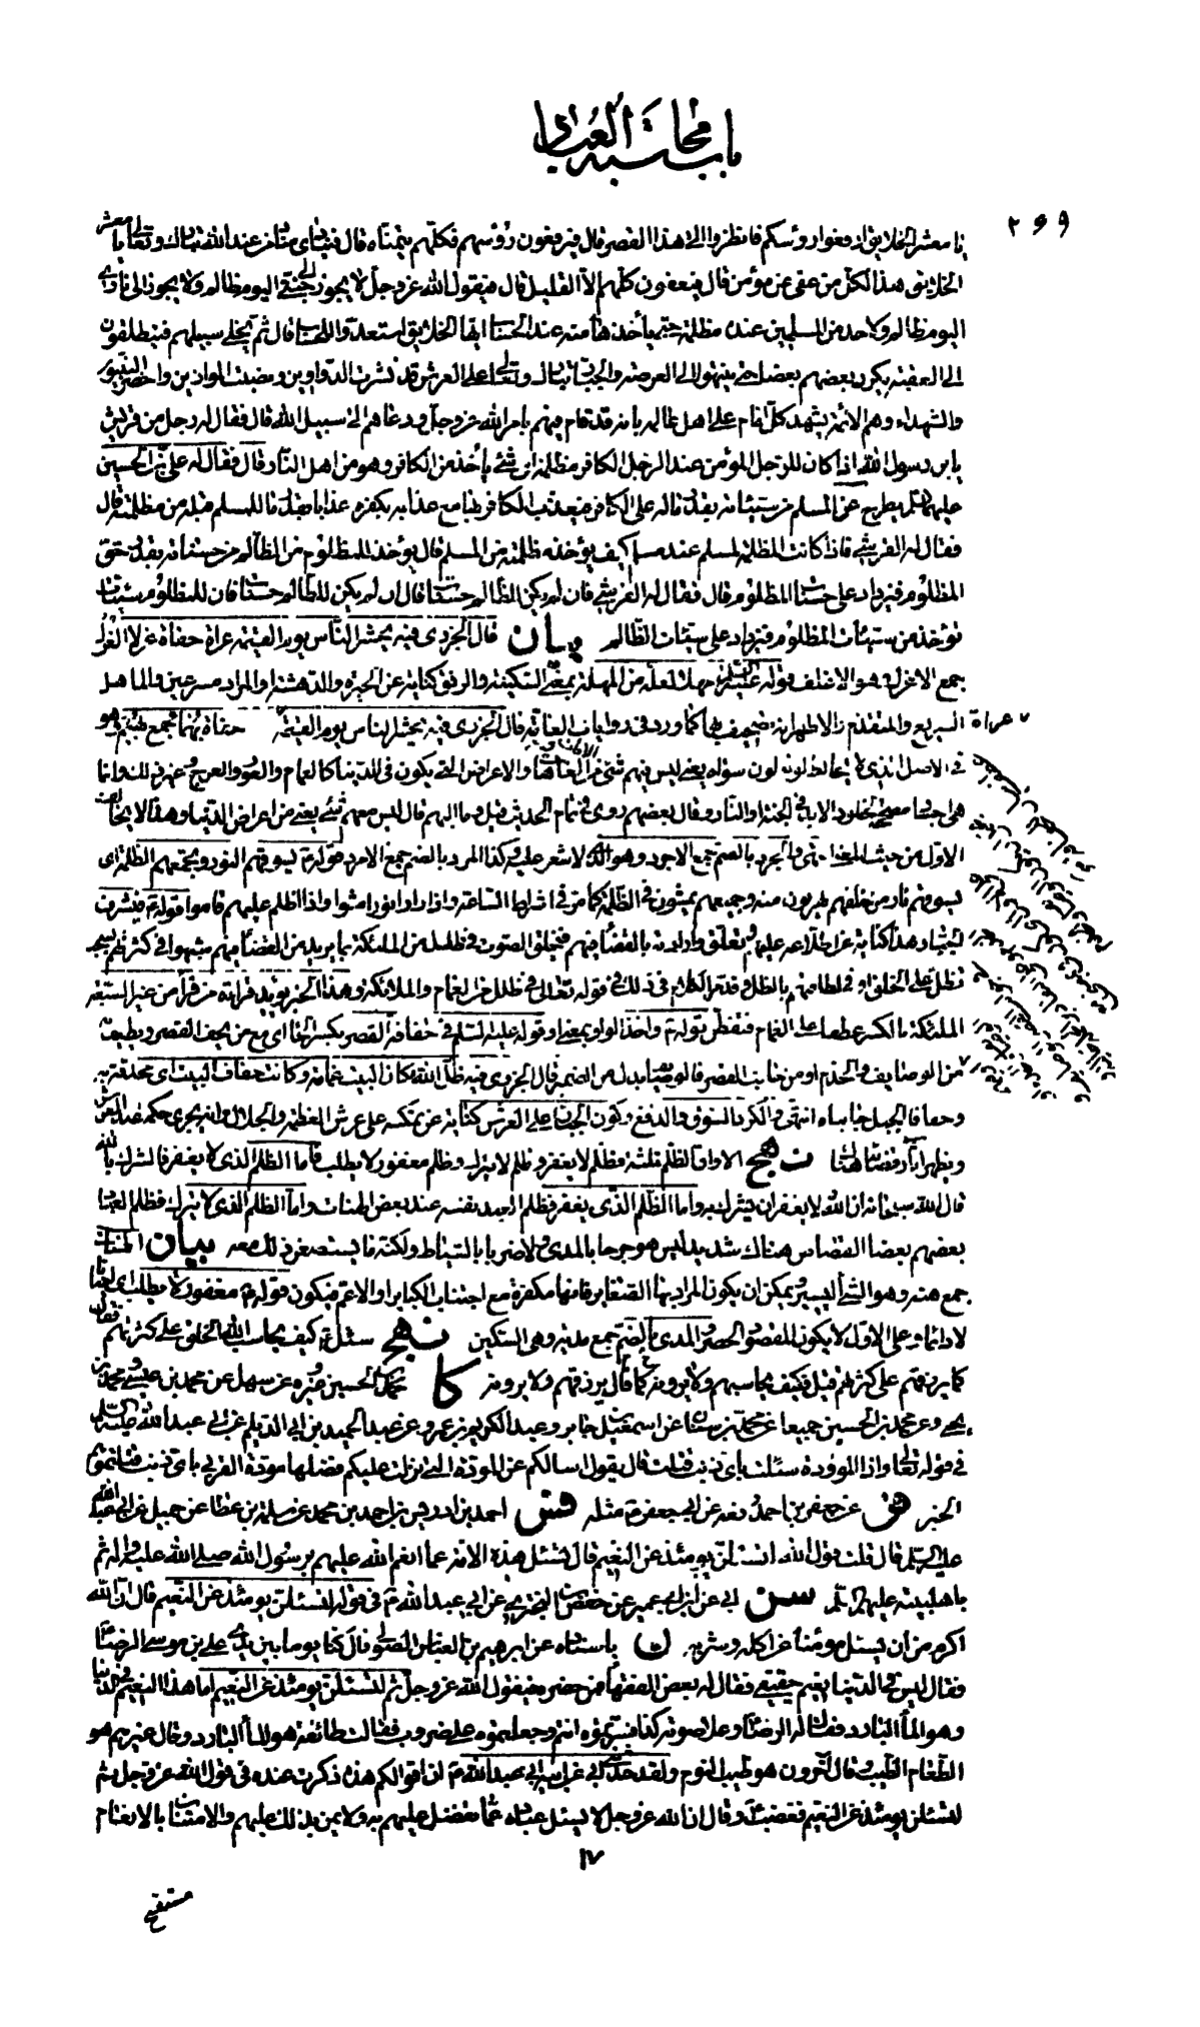 باب محاسبة العباد
٢٦٩
يا معشر الخلايق ارفعوا رؤسكم فانظروا الى هذا القصر قال فيرفعون رؤسهم فكلهم يتمناه قال فينادى مناد من عند الله تبارك وتعالى يا معشر
الخلايق هذا لكل من عفى عن مؤمن قال فيعفون كلهم الا القليل قال فيقول الله عز وجل لا يجوز الى جنتى اليوم ظالم ولا يجوز الى نارى
اليوم ظالم ولاحد من المسلمين عنده مظلمة حتى ياخذها منه عند الحساب ايها الخلايق استعدوا للحساب قال ثم يخلى سبيلهم فينطلقون
الى العقبة يكرد بعضهم بعضا حتى ينتهوا الى العرصة والجبار تبارك وتعالى على العرش قد نشرت الدواوين ونصبت الموازين واحضر النبيون
والشهداء وهم الائمة يشهد كل امام على اهل عالمه بانه قد قام فيهم بامر الله عز وجل ودعاهم الى سبيل الله قال فقال له رجل من قريش
يابن رسول الله اذا كان للرجل المؤمن عند الرجل الكافر مظلمة اى شئ ياخذ من الكافر وهو من اهل النار قال فقال له على بن الحسين
عليهما السلم يطرح عن المسلم من سيئاته بقدر ما له على الكافر فيعذب الكافر بها مع عذابه بكفره عذابا بقدر ما للمسلم قبله من مظلمة قال
فقال له القرشى فاذا كانت المظلمة لمسلم عند مسلم كيف يؤخذ مظلمته من المسلم قال يؤخذ للمظلوم من الظالم من حسناته بقدر حق
المظلوم فيزداد على حسنات المظلوم قال فقال له القرشى فان لم يكن للظالم حسنات قال ان لم يكن للظالم حسنات فان للمظلوم سيئات
تؤخذ من سيئات المظلوم فيزداد على سيئات الظالم بيان قال الجزرى فيه يحشر الناس يوم القيمة عراة حفاة غرلا الغرل
جمع الاغرل وهو الاغلف قوله عليه السلم مهلا لعله من المهلة بمعنى السكينة والرفق كناية عن الحيرة والدهشة والمراد مسرعين والماهل
السريع والمتقدم والاظهر انه تصحيف بهما كما ورد فى روايات العامة قال الجزرى فيه يحشر الناس يوم القيمة عراة حفاة بهما جمع بهيم وهو
فى الاصل الذى لا يخالط لونه لون سواه يعنى ليس فيهم شئ من العاهات والاعراض التى يكون فى الدنيا كالعمى والعور والعرج وغير ذلك وانما
هى اجساد مصححة لخلود الابد فى الجنة او النار وقال بعضهم روى فى تمام الحديث قيل وما البهم قال ليس معهم شئ يعنى من اعراض الدنيا وهذا لا يخالف
الاول من حيث المعنى انتهى والجرد بالضم جمع الاجرد وهو الذى لا شعر عليه وكذا المرد بالضم جمع الامرد قوله يسوقهم النور ويجمعهم الظلمة اى
يسوقهم نار من خلفهم يهربون منه وجميعهم يمشون فى الظلمة كما مر فى اشراط الساعة واذا راوا نورا مشوا واذا اظلم عليهم قاموا قوله فيشرف
الجبار هذا كناية عن اطلاعه عليهم وتعلق ارادته بالقضاء فيهم فيخلق الصوت فى ظلال من الملئكة بما يريد من القضاء فيهم شبهوا فى كثرتهم بسحب
تظل على الخلق او فى لطافتهم بالظل وقد مر الكلام فى ذلك فى قوله تعالى فى ظلل من الغمام والملائكة وهذا الخبر يؤيد قراءة من قرأ من غير السبعة
الملئكة بالكسر عطفا على الغمام
من الوصايف والخدم
وحفافا الجبل جانباه انتهى والكرد السوق والدفع وكون الجبار على العرش كناية عن تمكنه على عرش العظمة والجلال وانه يجرى حكمه عند العرش
ويظهر آثار قضائه هناك نهج الا وان الظلم ثلثة فظلم لا يغفر وظلم لا يترك وظلم مغفور لا يطلب فاما الظلم الذى لا يغفر فالشرك بالله
قال الله سبحانه ان الله لا يغفر ان يشرك به واما الظلم الذى يغفر فظلم العبد نفسه عند بعض الهنات واما الظلم الذى لا يترك فظلم العباد
بعضهم بعضا القصاص هناك شديد ليس هو جرحا بالمدى ولا ضربا بالسياط ولكنه ما يستصغر ذلك معه بيان الهنات
جمع هنة وهو الشئ اليسير ويمكن ان يكون المراد بها الصغاير فانها مكفرة مع اجتناب الكباير او الاعم فيكون قوله مغفور لا يطلب اى احيانا
لا دائما وعلى الاول لا يكون المقصود الحصر والمدى بالضم جمع مدية وهى السكين نهج سئل كيف يحاسب الله الخلق على كثرتهم فقال
كما يرزقهم على كثرتهم قيل فكيف يحاسبهم ولا يرونه قال كما يرزقهم ولا يرونه كا محمد بن الحسين وغيره عن سهل عن محمد بن عيسى ومحمد بن
يحيى وعن محمد بن الحسين جميعا عن محمد بن سنان عن اسمعيل بن جابر وعبد الكريم بن عمرو عن عبد الحميد بن ابى الديلم عن ابى عبد الله عليه السلم
فى قوله تعالى واذا الموؤدة سئلت باى ذنب قتلت قال يقول اسالكم عن المودة التى نزلت عليكم فضلها مودة القربى باى ذنب قتلتموهم
الخبر فر عن جعفر بن احمد رفعه عن ابى جعفر مثله فس احمد بن ادريس عن احمد بن محمد عن سلمة بن عطا عن جميل عن ابى عبد الله
عليه السلم قال قلت قول الله لتسئلن يومئذ عن النعيم قال تسئل هذه الامة عما انعم الله عليهم برسول الله صلى الله عليه وآله ثم
باهل بيته عليهم السلم سن ابى عن ابن ابى عمير عن حفص بن البخترى عن ابى عبد الله ع فى قوله لتسئلن يومئذ عن النعيم قال ان الله
اكرم من ان يسئل مؤمنا عن اكله وشربه ن باسناده عن ابرهيم بن العباس الصولى قال كنا يوما بين يدى على بن موسى الرضا
فقال ليس فى الدنيا نعيم حقيقى فقال له بعض الفقهاء ممن حضره فيقول الله عز وجل ثم لتسئلن يومئذ عن النعيم اما هذا النعيم فى الدنيا
وهو الماء البارد فقال له الرضا وعلا صوته كذا فسرتموه انتم وجعلتموه على ضروب فقالت طائفة هو الماء البارد وقال غيرهم هو
الطعام الطيب وقال آخرون هو طيب النوم ولقد حدثنى ابى عن ابيه ابى عبد الله ع ان اقوالكم هذه ذكرت عنده فى قول الله عز وجل ثم
لتسئلن يومئذ عن النعيم فغضب وقال ان الله عز وجل لا يسئل عباده عما تفضل عليهم به ولا يمن بذلك عليهم والامتنان بالانعام
١٧
مستقبح